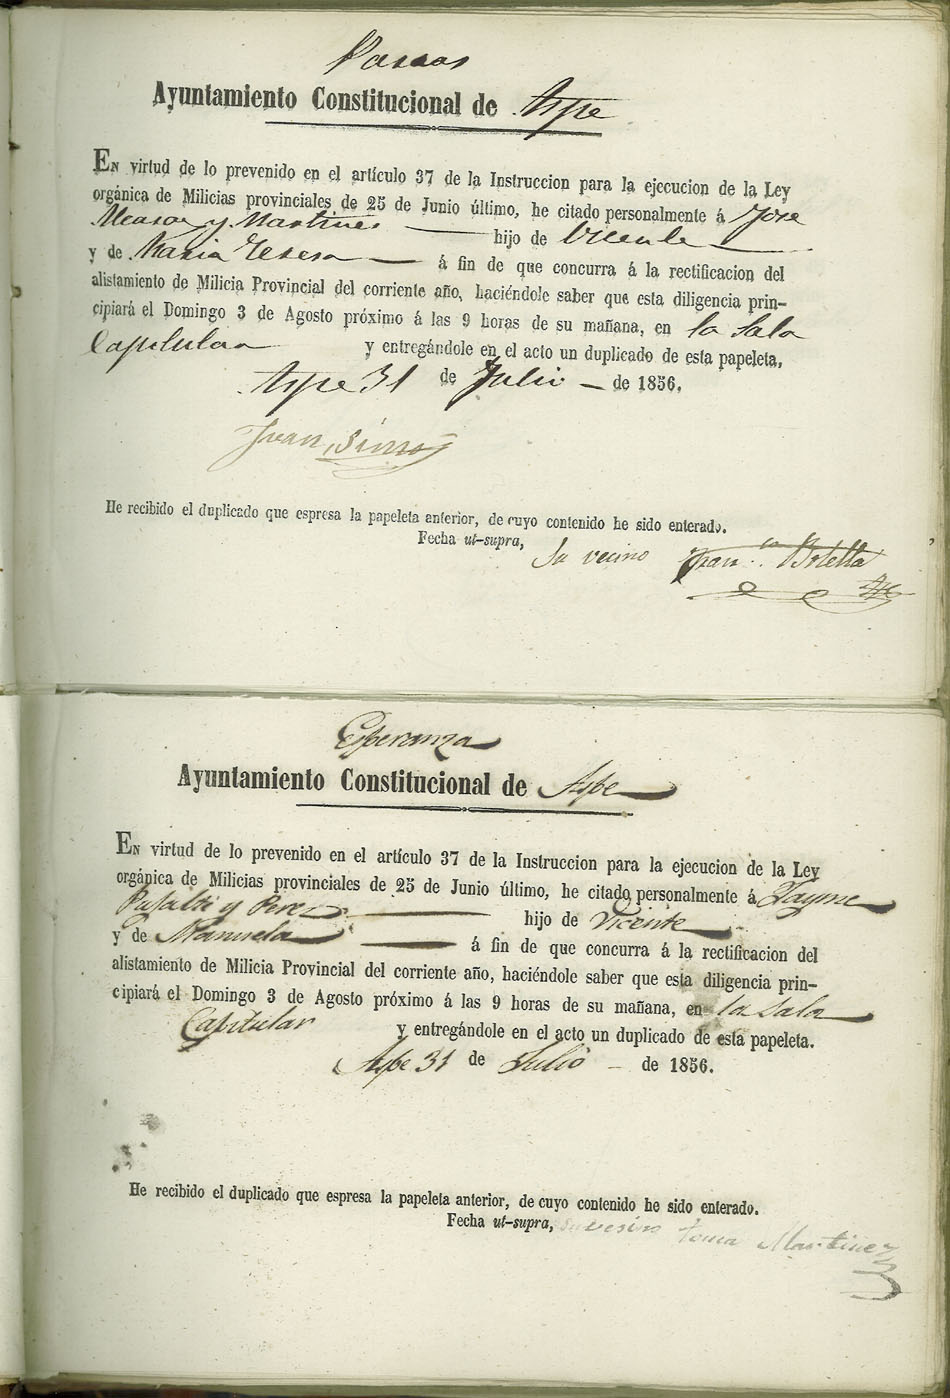 Ayuntamiento Constitucional de Aspe
EN virtud de lo prevenido en el artículo 37 de la Instruccion para la ejecucion de la Ley
orgánica de Milicias provinciales de 25 de Junio último, he citado personalmente á Jose
y Martines hijo de Vicente
y de Maria Teresa á fin de que concurra á la rectificacion del
alistamiento de Milicia Provincial del corriente año, haciéndole saber que esta diligencia prin-
cipiará el Domingo 3 de Agosto próximo á las 9 horas de su mañana, en la Sala
Capitular y entregándole en el acto un duplicado de esta papeleta.
Aspe 31 de Julio de 1856.
Juan
He recibido el duplicado que espresa la papeleta anterior, de cuyo contenido he sido enterado.
Fecha ut-supra,
Su vecino Franco Botella
Esperanza
Ayuntamiento Constitucional de Aspe
EN virtud de lo prevenido en el artículo 37 de la Instruccion para la ejecucion de la Ley
orgánica de Milicias provinciales de 25 de Junio último, he citado personalmente á Jayme
y Perez hijo de Vicente
y de Manuela á fin de que concurra á la rectificacion del
alistamiento de Milicia Provincial del corriente año, haciéndole saber que esta diligencia prin-
cipiará el Domingo 3 de Agosto próximo á las 9 horas de su mañana, en la Sala
Capitular y entregándole en el acto un duplicado de esta papeleta.
Aspe 31 de Julio de 1856.
He recibido el duplicado que espresa la papeleta anterior, de cuyo contenido he sido enterado.
Fecha ut-supra, su vesin toma Martinez